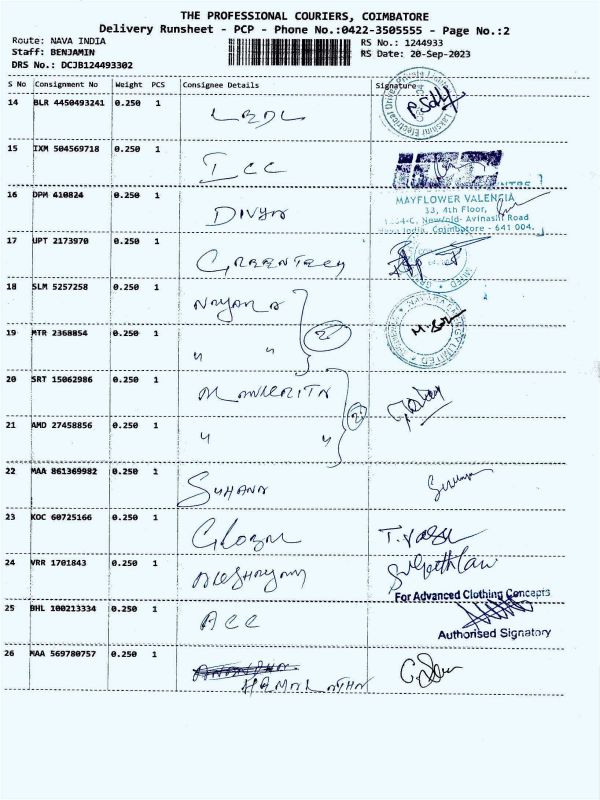 THE PROFESSIONAL COURIERS, COIMBATORE
Delivery Runsheet - PCP - Phone No.:0422-3505555 - Page No.:2
Route: NAVA INDIA RS No.: 1244933
Staff: BENJAMIN RS Date: 20-Sep-2023
DRS No.: DCJB124493302
S No Consignment No Weight PCS Consignee Details Signature
14 BLR 4450493241 0.250 1 LEDL
15 IXM 504569718 0.250 1 ICC
16 DPM 410824 0.250 1 DIVYA
MAYFLOWER VALENCIA
33, 4th Floor,
Avinashi Road
Coimbatore - 641 004.
17 UPT 2173970 0.250 1 GREENTECH
18 SLM 5257258 0.250 1 NAYARA
19 MTR 2368854 0.250 1 " "
20 SRT 15062986 0.250 1
21 AMD 27458856 0.250 1 " "
22 MAA 861369982 0.250 1 SUHANA
23 KOC 60725166 0.250 1 GLOBAL
24 VRR 1701843 0.250 1
For Advanced Clothing Concepts
25 BHL 100213334 0.250 1 ACC
Authorised Signatory
26 MAA 569780757 0.250 1